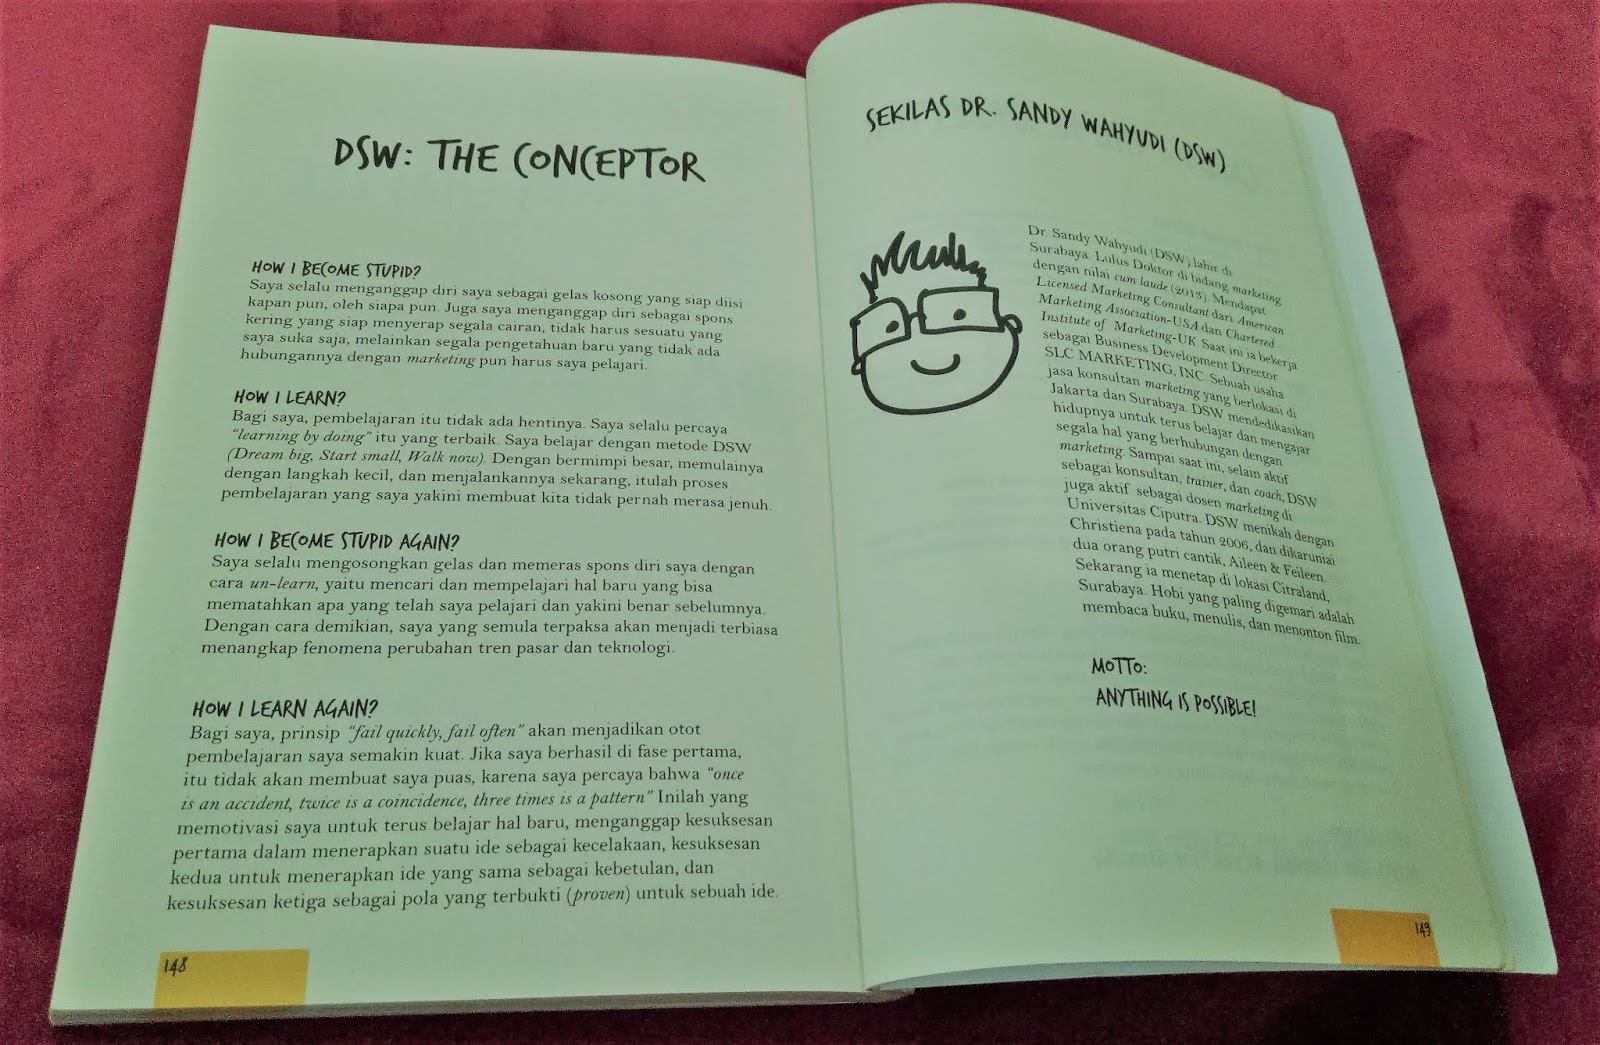 DSW: THE CONCEPTOR
HOW I BECOME STUPID?
Saya selalu menganggap diri saya sebagai gelas kosong yang siap diisi
kapan pun, oleh siapa pun. Juga saya menganggap diri sebagai spons
kering yang siap menyerap segala cairan, tidak harus sesuatu yang
saya suka saja, melainkan segala pengetahuan baru yang tidak ada
hubungannya dengan marketing pun harus saya pelajari.
HOW I LEARN?
Bagi saya, pembelajaran itu tidak ada hentinya. Saya selalu percaya
“learning by doing” itu yang terbaik. Saya belajar dengan metode DSW
(Dream big, Start small, Walk now). Dengan bermimpi besar, memulainya
dengan langkah kecil, dan menjalankannya sekarang, itulah proses
pembelajaran yang saya yakini membuat kita tidak pernah merasa jenuh.
HOW I BECOME STUPID AGAIN?
Saya selalu mengosongkan gelas dan memeras spons diri saya dengan
cara un-learn, yaitu mencari dan mempelajari hal baru yang bisa
mematahkan apa yang telah saya pelajari dan yakini benar sebelumnya.
Dengan cara demikian, saya yang semula terpaksa akan menjadi terbiasa
menangkap fenomena perubahan tren pasar dan teknologi.
HOW I LEARN AGAIN?
Bagi saya, prinsip “fail quickly, fail often” akan menjadikan otot
pembelajaran saya semakin kuat. Jika saya berhasil di fase pertama,
itu tidak akan membuat saya puas, karena saya percaya bahwa “once
is an accident, twice is a coincidence, three times is a pattern” Inilah yang
memotivasi saya untuk terus belajar hal baru, menganggap kesuksesan
pertama dalam menerapkan suatu ide sebagai kecelakaan, kesuksesan
kedua untuk menerapkan ide yang sama sebagai kebetulan, dan
kesuksesan ketiga sebagai pola yang terbukti (proven) untuk sebuah ide.
148
SEKILAS DR. SANDY WAHYUDI (DSW)
Dr. Sandy Wahyudi (DSW) lahir di
Surabaya. Lulus Doktor di bidang marketing
dengan nilai cum laude (2013). Mendapat
Licensed Marketing Consultant dari American
Marketing Association-USA dan Chartered
Institute of Marketing-UK. Saat ini ia bekerja
sebagai Business Development Director
SLC MARKETING, INC. Sebuah usaha
jasa konsultan marketing yang berlokasi di
Jakarta dan Surabaya. DSW mendedikasikan
hidupnya untuk terus belajar dan mengajar
segala hal yang berhubungan dengan
marketing. Sampai saat ini, selain aktif
sebagai konsultan, trainer, dan coach, DSW
juga aktif sebagai dosen marketing di
Universitas Ciputra. DSW menikah dengan
Christiena pada tahun 2006, dan dikaruniai
dua orang putri cantik, Aileen & Feileen.
Sekarang ia menetap di lokasi Citraland,
Surabaya. Hobi yang paling digemari adalah
membaca buku, menulis, dan menonton film.
MOTTO:
ANYTHING IS POSSIBLE!
149